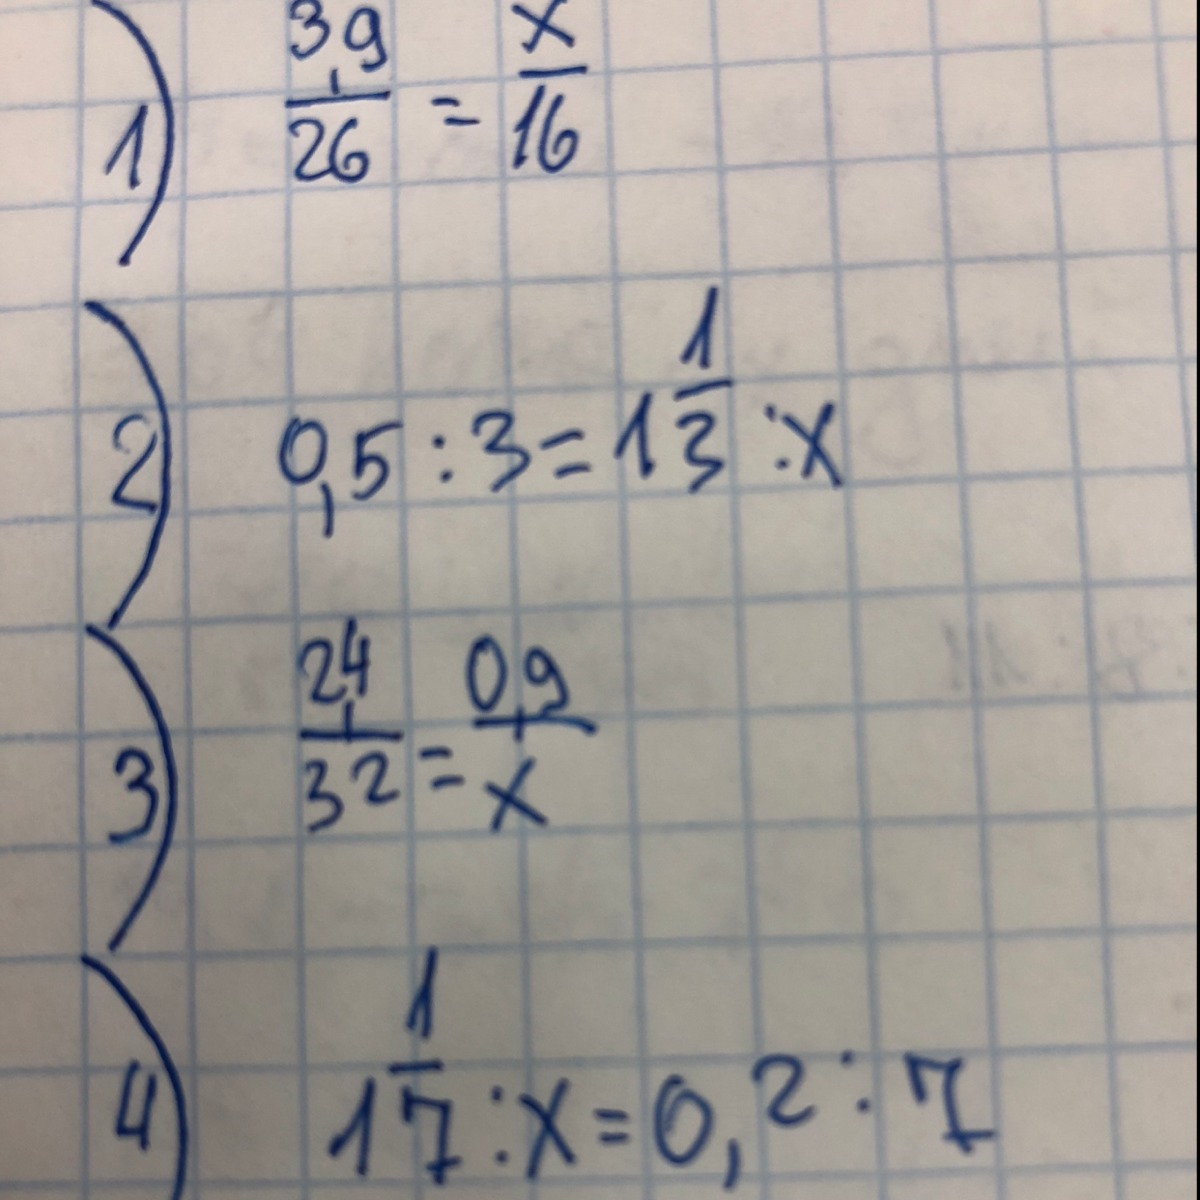 1) 3,9/26 = x/16
2) 0,5 : 3 = 1 1/3 : x
3) 2,4/32 = 0,9/x
4) 1 1/7 : x = 0,2 : 7